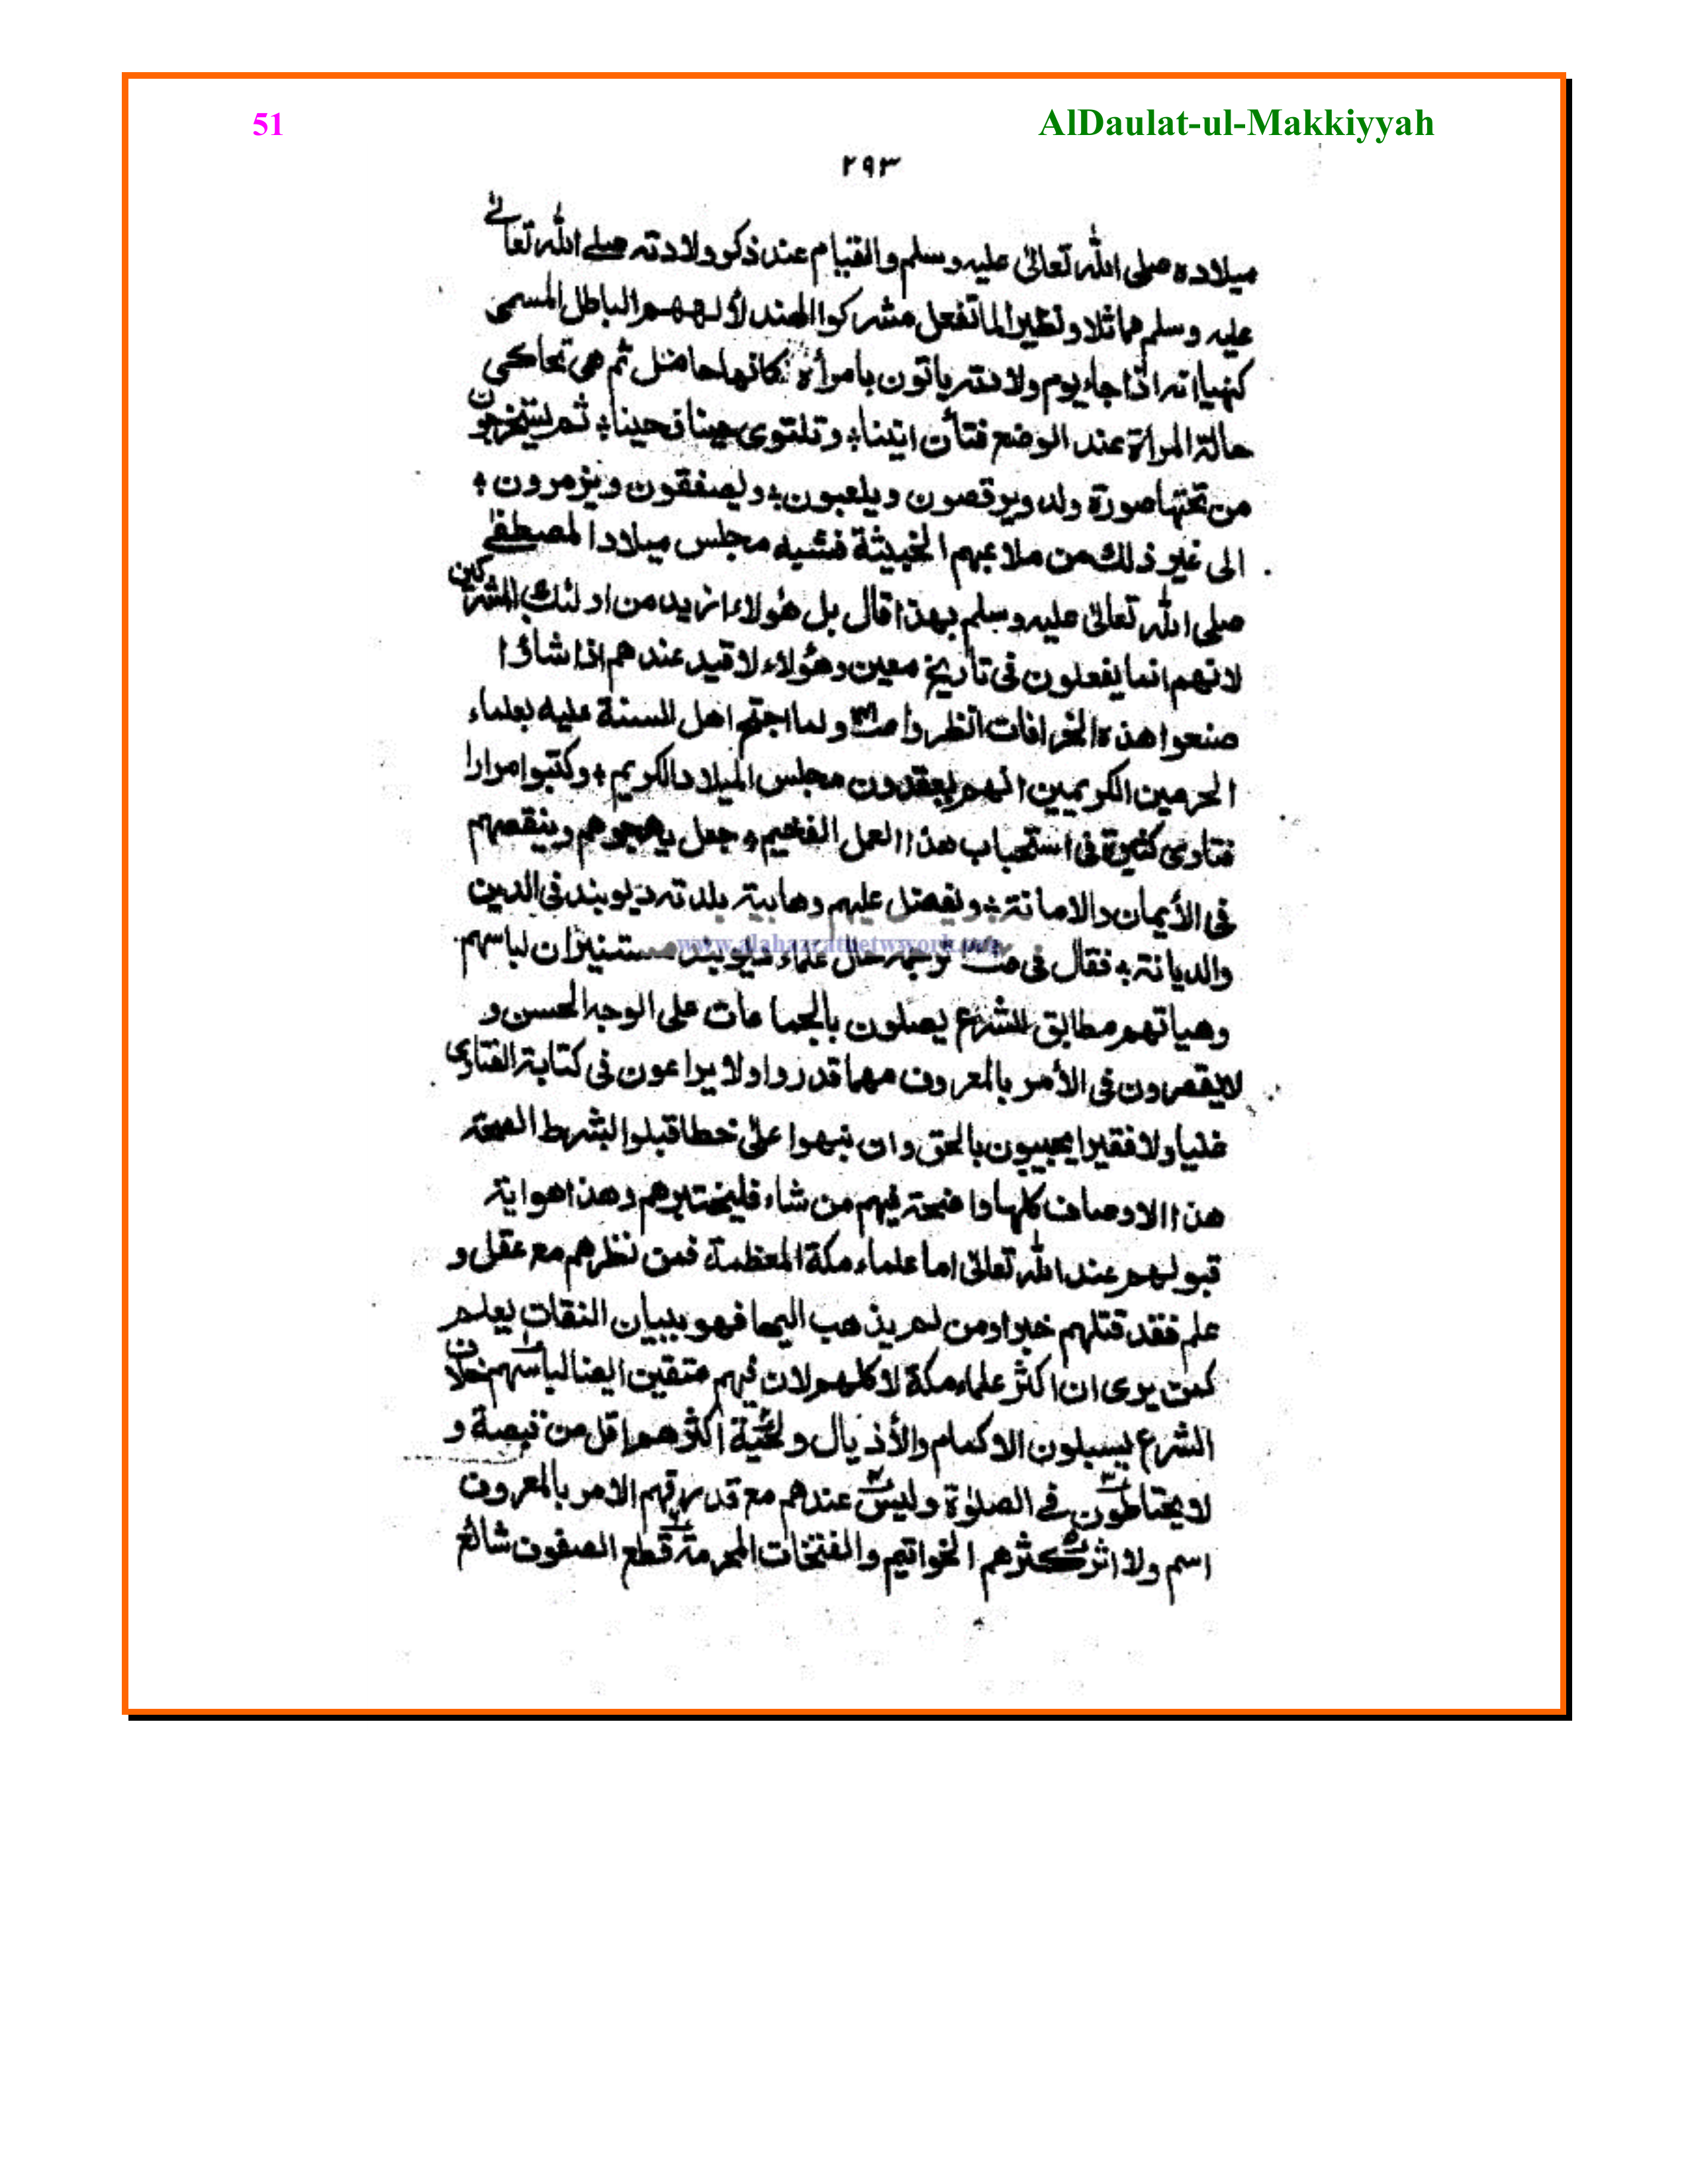 51 AlDaulat-ul-Makkiyyah
٢٩٣
ميلاده صلى الله تعالىٰ عليه وسلم والقيام عند ذكر ولادته صلے الله تعالےٰ
عليه وسلم مماثلا ونظيرا لما تفعل مشركوا الهند لألههم الباطل المسمى
كنهيا انه اذا جاء يوم ولادته ياتون بامرأة كانها حامل ثم هى تحاكى
حالة المرأة عند الوضع فتأن انينا؛ وتلتوى حينا فحينا؛ ثم يستخرجون
من تحتها صورة ولد ويرقصون ويلعبون؛ ويصفقون ويزمرون؛
الى غير ذلك من ملاعبهم الخبيثة فشبه مجلس ميلاد المصطفٰے
صلى الله تعالىٰ عليه وسلم بهذا قال بل هٰؤلاء ازيد من اولئك المشركين
لانهم انما يفعلون فى تأريخ معين وهٰؤلاء لا قيد عندهم اذا شاؤا
صنعوا هذه الخرافات انظروا ولما احتج اهل السنة عليه بعلماء
الحرمين الكريمين انهم يعقدون مجلس الميلاد الكريم؛ وكتبوا مرارا
فتاوى كثيرة فى استحباب هذا العمل الفخيم؛ جعل يهجوهم وينقصهم
فى الأيمان والامانة؛ ويفضل عليهم وهابية بلدته ديوبند فى الدين
والديانة؛ فقال فى ترجمه حال علماء ديوبند لباسهم
وهياتهم مطابق للشرع يصلون بالجماعات على الوجه الحسن و
لا يقصرون فى الأمر بالمعروف مهما قدروا ولا يراعون فى كتابة الفتاوى
غنيا ولا فقيرا يجيبون بالحق وان نبهوا علىٰ خطا قبلوا بشرط الصحة
هذا الاوصاف كلها واضحة فيهم من شاء فليختبرهم وهذا هو اية
قبولهم عند الله تعالىٰ اما علماء مكة المعظمة فمن نظرهم مع عقل و
علم فقد قتلهم خبرا ومن لم يذهب اليها فهو ببيان الثقات يعلم
كمن يرى ان اكثر علماء مكة لا كلهم لان فيهم متقين ايضا لباسهم خلاف
الشرع يسبلون الاكمام والأذيال ولحية اكثرهم اقل من قبضة و
لا يحتاطون فے الصلوٰة وليس عندهم مع قدرتهم الامر بالمعروف
اسم ولا اثر اكثرهم الخواتيم والفتخات المحرمة قطع الصفوف شائع
www.alahazratnetwork.org